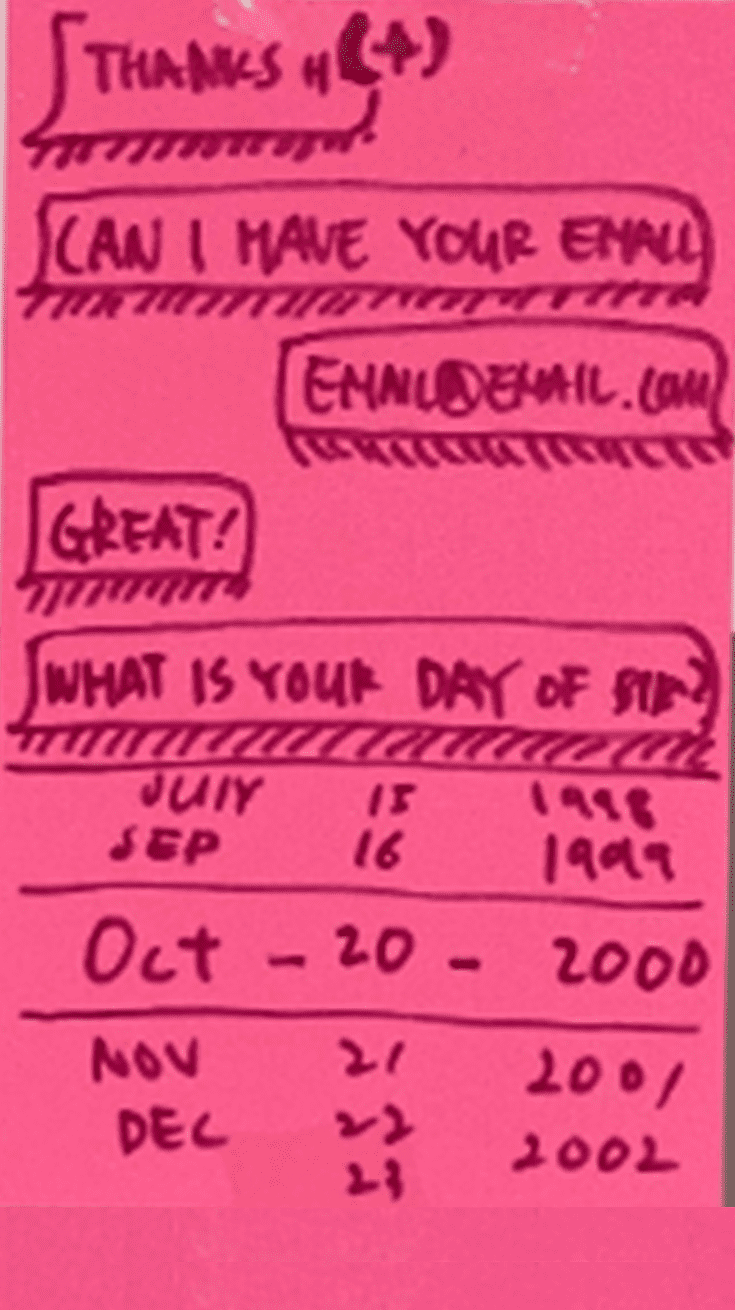 THANKS H (+)
CAN I HAVE YOUR EMAIL
EMAIL@EMAIL.COM
GREAT!
WHAT IS YOUR DAY OF BIR?
JULY 15 1998
SEP 16 1999
Oct - 20 - 2000
NOV 21 2001
DEC 22 2002
23